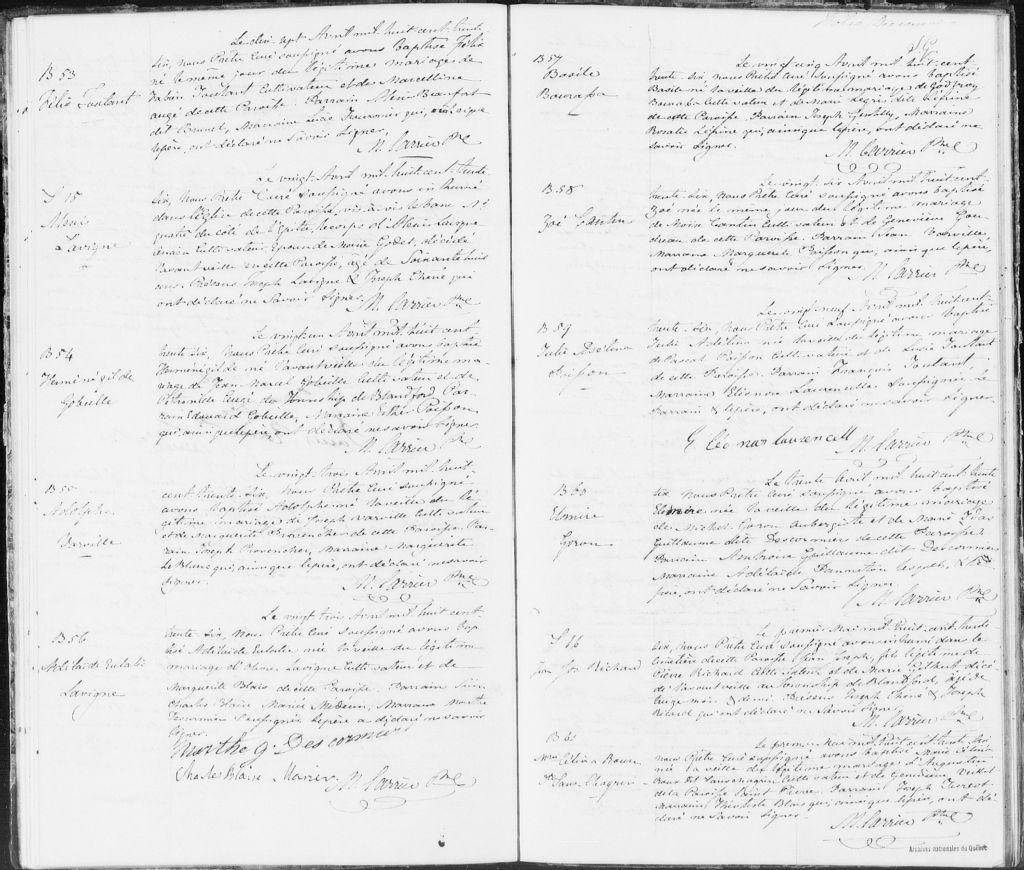 B 53
Félix Toutant
Le dix sept Avril mil huit cent trente
six, nous Prêtre Curé soussigné avons baptisé Félix
né le même jour du légitime mariage de
Fabien Toutant Cultivateur et de Marcelline
Augé de cette Paroisse. Parrain Alexis Beaufort
dit Brunel, Marraine qui, ainsi que
le père, ont déclaré ne savoir signer.
M. Carrier Ptre
S 15
Alexis
Lavigne
Le vingt Avril mil huit cent trente
six, Nous Prêtre Curé soussigné avons inhumé
dans l'Eglise de cette Paroisse, vis-à-vis le banc No
quatre du côté de l'Epitre, le corps d'Alexis Lavigne
Cultivateur Epoux de Marie Godet, décédé
l'avant veille en cette Paroisse, âgé de soixante huit
ans. Présens Joseph Lavigne & Joseph Chené qui
ont déclaré ne savoir signer.
M. Carrier Ptre
B 54
Herménégilde
Gobeille
Le vingt un Avril mil huit cent
trente six, Nous Prêtre Curé soussigné avons baptisé
Herménégilde né l'avant veille du légitime ma-
riage de Jean Marcel Gobeille Cultivateur et de
Pétronille Augé du Township de Blandford. Par-
rain Edouard Gobeille, Marraine Poisson
qui, ainsi que le père, ont déclaré ne savoir signer.
M. Carrier Ptre
B 55
Adolphe
Varville
Le vingt trois Avril mil huit
cent trente six, Nous Prêtre Curé soussigné
avons baptisé Adolphe né la veille du lé-
gitime mariage de Joseph Varville Cultivateur
et de Marguerite Provencher de cette Paroisse. Par-
rain Joseph Provencher, Marraine Marguerite
Le Blanc qui, ainsi que le père, ont déclaré ne savoir
signer.
M. Carrier Ptre
B 56
Adélaïde Eulalie
Lavigne
Le vingt trois Avril mil huit cent
trente six, Nous Prêtre Curé soussigné avons bap-
tisé Adélaïde Eulalie née la veille du légitime
mariage d'Olivier Lavigne Cultivateur et de
Marguerite Blais de cette Paroisse. Parrain
Charles Blais Marié Médecin, Marraine Marthe
Descormiers soussignés. Le père a déclaré ne savoir
signer.
Marthe g Des cormiers
Charles Blais Marier
M. Carrier Ptre
B 57
Basile
Bourassa
Le vingt cinq Avril mil huit cent
trente six, Nous Prêtre Curé soussigné avons baptisé
Basile né la veille du légitime mariage de Godfroy
Bourassa Cultivateur et de Marie dit Lépine
de cette Paroisse. Parrain Joseph Gentilly, Marraine
Rosalie Lépine qui, ainsi que le père, ont déclaré ne
savoir signer.
M. Carrier Ptre
B 58
Zoé Cantin
Le vingt six Avril mil huit cent
trente six, Nous Prêtre Curé soussigné avons baptisé
Zoé née le même jour du légitime mariage
de Moïse Cantin Cultivateur et de Geneviève Gou-
deau de cette Paroisse. Parrain Jean Varville,
Marraine Marguerite Brisson qui, ainsi que le père,
ont déclaré ne savoir signer.
M. Carrier Ptre
B 59
Julie Adéline
Poisson
Le vingt neuf Avril mil huit cent
trente six, Nous Prêtre Curé soussigné avons baptisé
Julie Adéline née la veille du légitime mariage
de Pascal Poisson Cultivateur et de Lucie Toutant
de cette Paroisse. Parrain François Toutant,
Marraine Eléonore Laurencelle soussignée. Le
Parrain & le père, ont déclaré ne savoir signer.
Eléonor laurencell
M. Carrier Ptre
B 60
Elmire
Goron
Le trente Avril mil huit cent trente
six, Nous Prêtre Curé soussigné avons baptisé
Elmire née la veille du légitime mariage
de Michel Goron Aubergiste et de Marie
Guillaume dite Descormiers de cette Paroisse.
Parrain Ambroise Guillaume dit Descormiers
Marraine Adélaïde Panneton lesquels, & le
père, ont déclaré ne savoir signer.
M. Carrier Ptre
S 16
Jean Jos Richard
Le premier Mai mil huit cent trente
six, Nous Prêtre Curé soussigné avons inhumé dans le
Cimetière de cette Paroisse Jean Joseph, fils légitime de
Pierre Richard Cultivateur et de Marie Gilbert décé-
dé l'avant veille au Township de Blandford, âgé de
mois & demi. Présens Joseph Chené & Joseph
Richard qui ont déclaré ne savoir signer.
M. Carrier Ptre
B 61
Mie Célina Bour
dt Sans Chagrin
Le premier Mai mil huit cent trente six
nous Prêtre Curé soussigné avons baptisé Marie Célina
née la veille du légitime mariage d'Augustin
dit Sanschagrin Cultivateur et de Geneviève
de la Paroisse Saint Pierre. Parrain Joseph
Marraine Théotiste Blais qui, ainsi que le père, ont dé-
claré ne savoir signer.
M. Carrier Ptre
Archives nationales du Québec